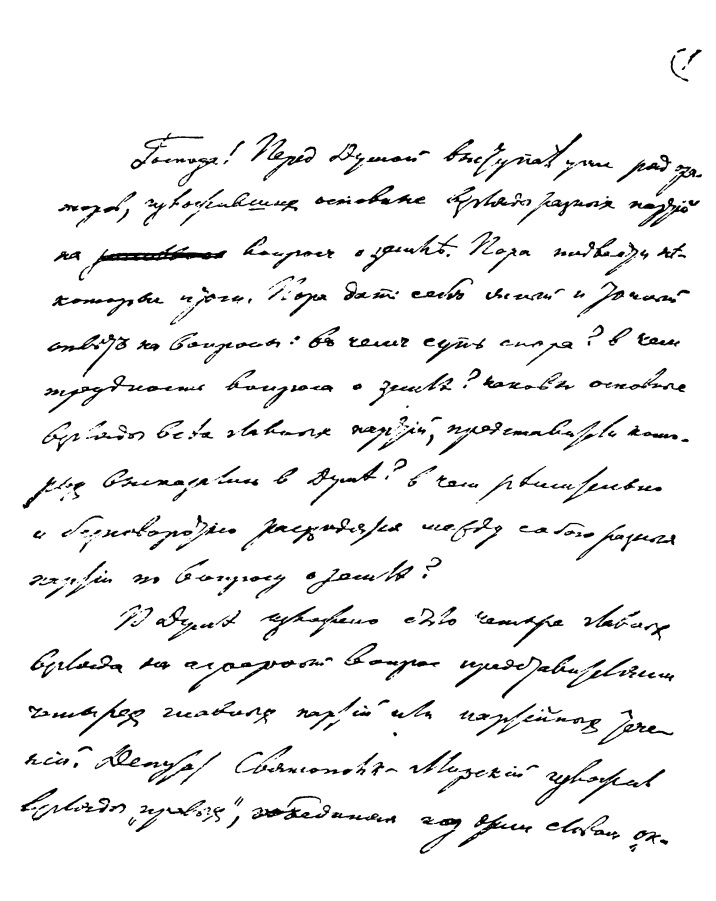 1
Господа! Перед Думой выступал уже ряд ора-
торов, изложивших основные взгляды разных партiй
на вопрос о землѣ. Пора подвести нѣ-
которые итоги. Пора дать себѣ ясный и точный
отвѣтъ на вопросы: въ чемъ суть спора? в чем
трудность вопроса о землѣ? каковы основные
взгляды всѣх главных партiй, представители кото-
рых высказались в Думѣ? в чем рѣшительно
и безповоротно расходятся между собою разныя
партiи по вопросу о землѣ?
В Думѣ изложено было четыре главных
взгляда на аграрный вопрос представителями
четырех главных партiй или партiйных тече-
нiй. Депутат Святополк-Мирскiй изложил
взгляды „правых“, объединяя под этим словом „ок-